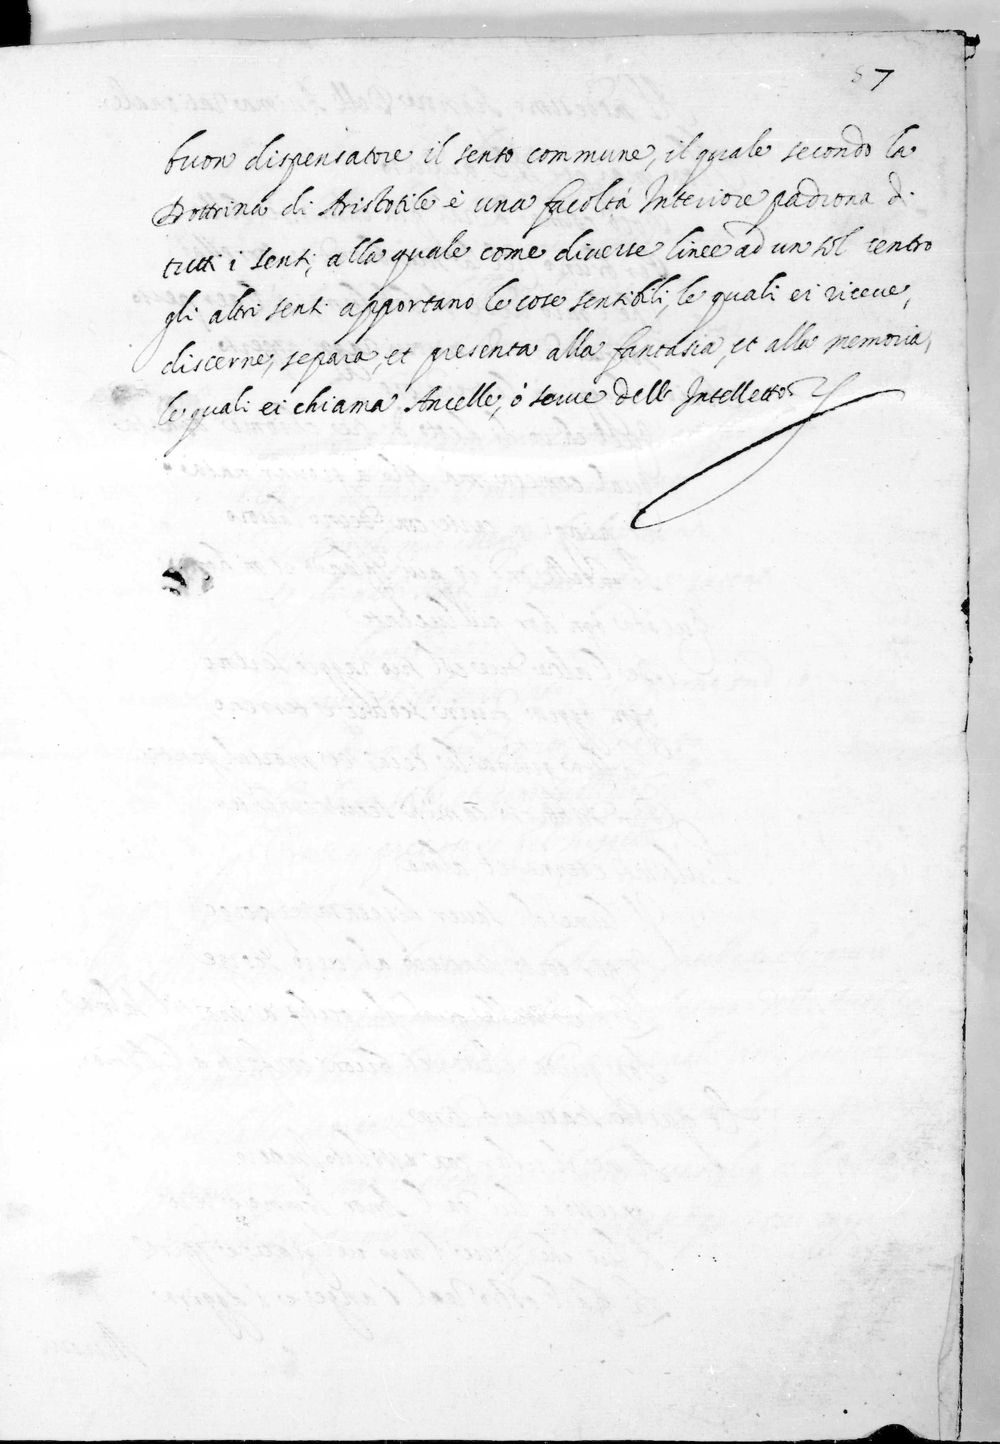 57
buon dispensatore il senso commune, il quale secondo la
Dottrina di Aristotile è una facoltá Interiore padrona di
tutti i sensi, alla quale come diverse linee ad un sol centro
gli altri sensi apportano le cose sensibili, le quali ei riceve,
discerne, separa, et presenta alla fantasia, et alla memoria,
le quali ei chiama Ancelle, ó serve dell Intelletto